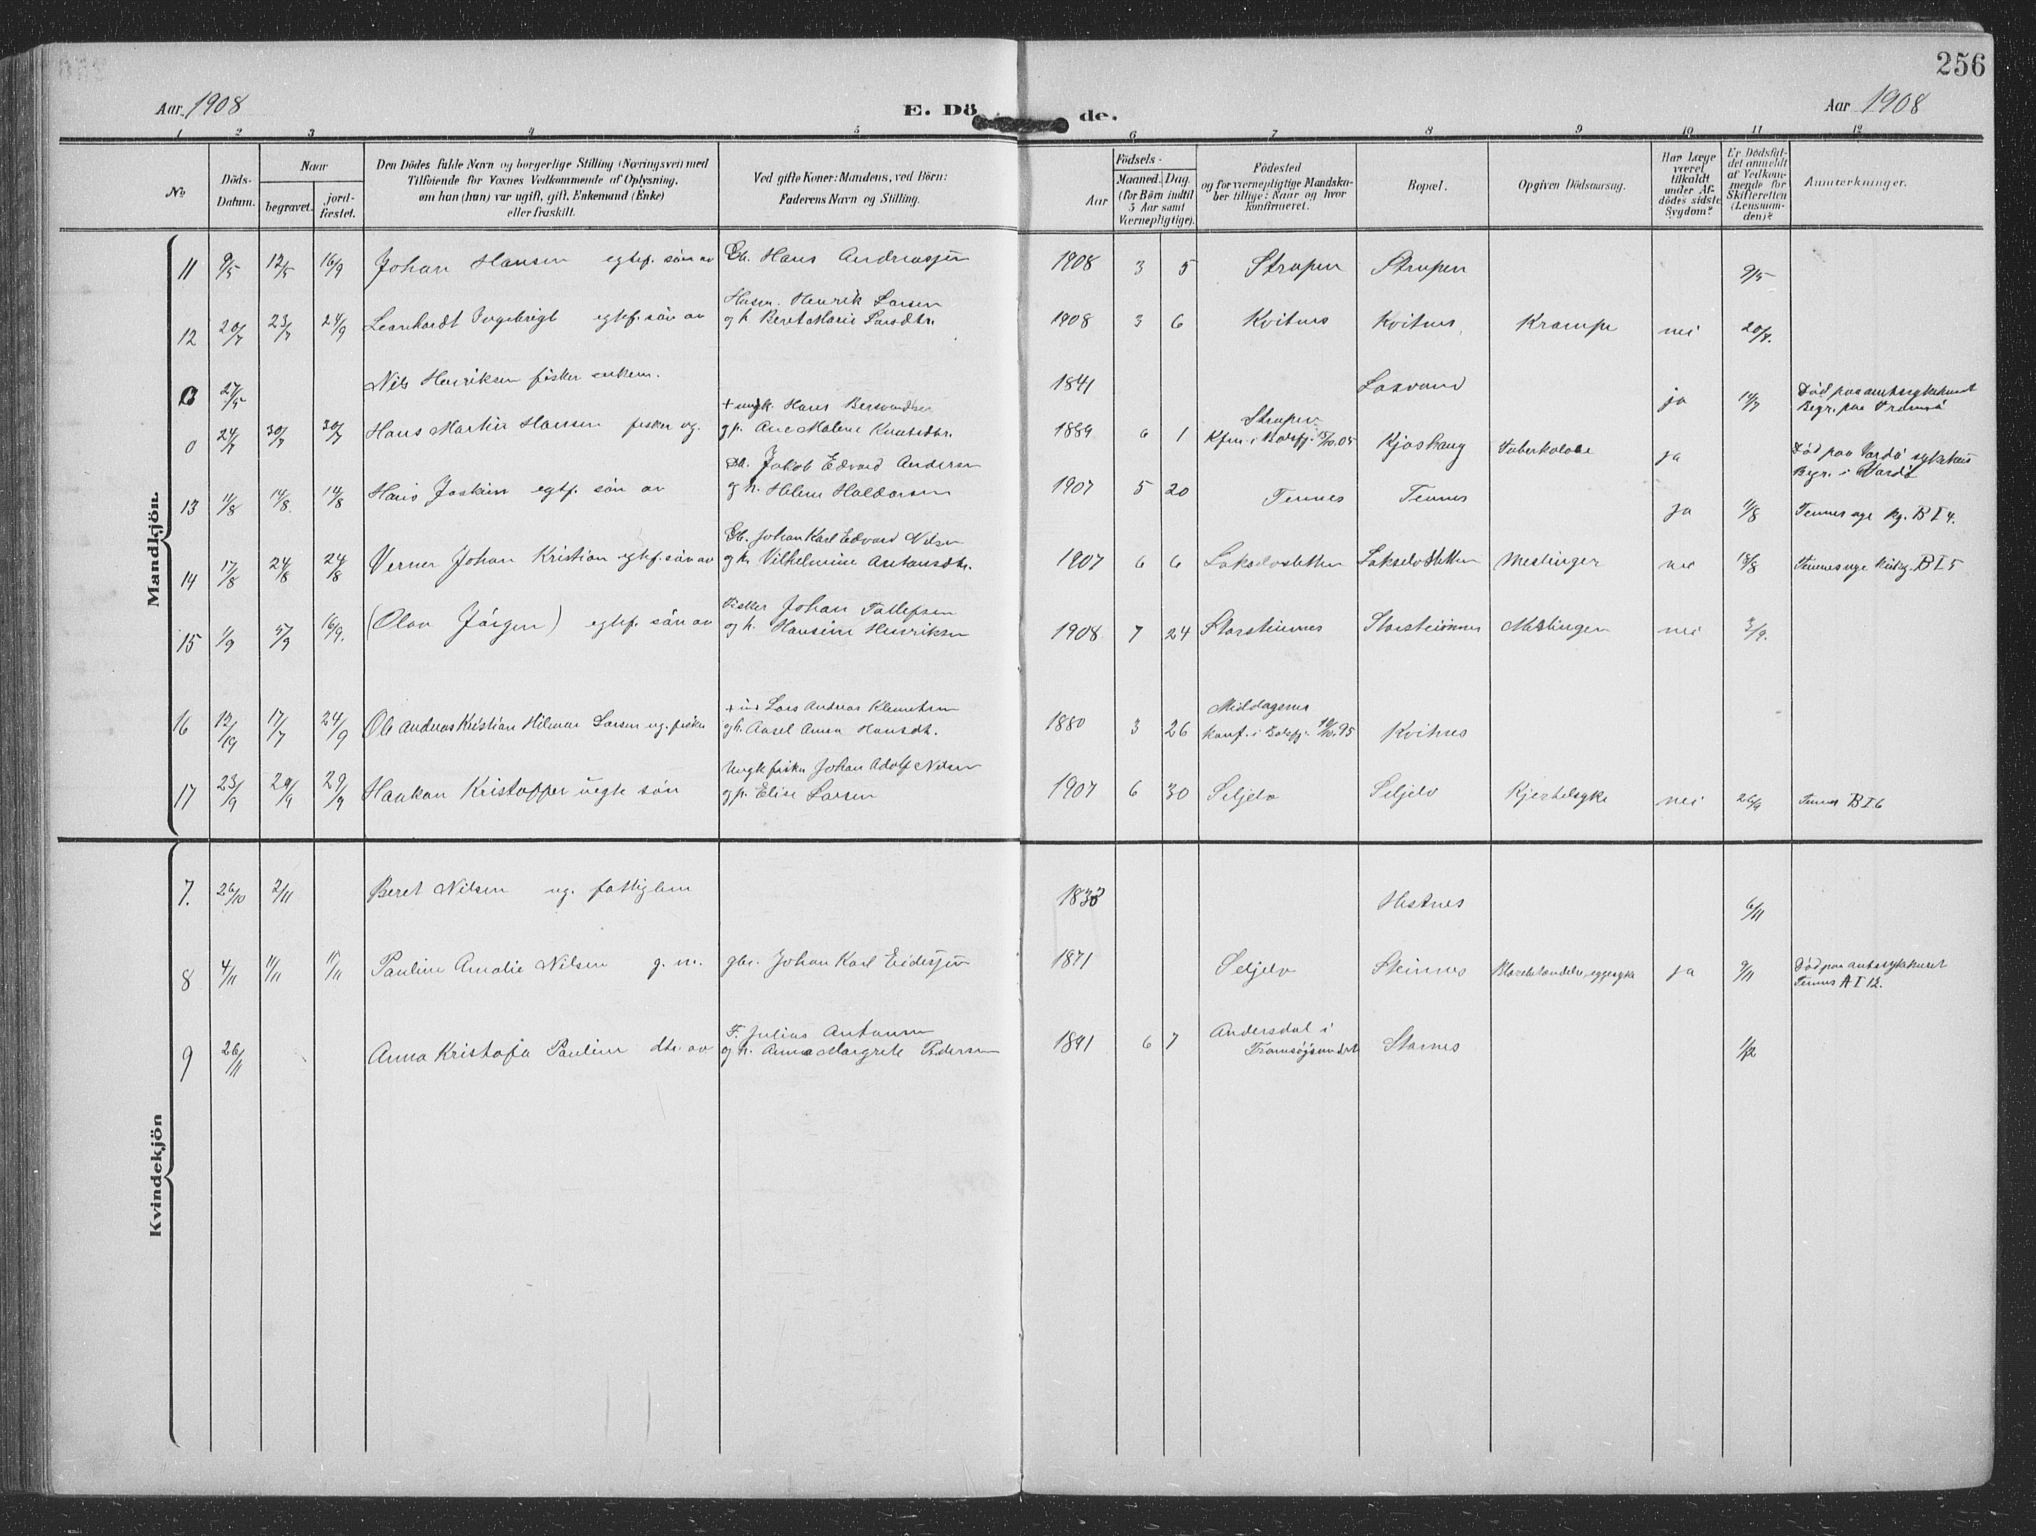 256
Aar 1908
E. Dö
de.
Aar 1908
1 2 3 4 5 6 7 8 9 10 11 12
No
Döds-
Datum.
Naar
begravet.
jord-
fæstet.
Den Dödes fulde Navn og borgerlige Stilling (Næringsvei) med
Tilföiende for Voxnes Vedkommende af Oplysning,
om han (hun) var ugift, gift, Enkemand (Enke)
eller fraskilt.
Ved gifte Koner: Mandens, ved Börn:
Faderens Navn og Stilling.
Födsels-
Aar
Maaned. Dag
(for Börn indtil
5 Aar samt
Værnepligtige).
Födested
og for værnepligtige Mandska-
ber tillige: Naar og hvor
konfirmeret.
Bopæl.
Opgiven Dödsaarsag.
Har Læge
været
tilkaldt
under Af-
dödes sidste
Sygdom?
Er Dödsfal-
det anmeldt
af Vedkom-
mende for
Skifteretten
(Lensman-
den)?
Anmærkninger.
Mandkjön.
11 9/5 12/5 16/9 Johan Hansen egtef. sön av Gb. Hans Andreassen 1908 3 5 Strupen Strupen 9/5
Henrik Larsen
12 20/7 23/7 24/9 Leonhardt Ingebrigt egtef. sön av og h. Beret Marie 1908 3 6 Kvitnes Kvitnes Krampe nei 20/7.
0 27/5 Nils Henriksen fisker enkem. 1841 Laxvand ja 14/7 Död paa amtssykehuset
Begr. paa Tromsö
+ ungk. Hans
0 24/7 30/7 30/7 Hans Martin Hansen fisker ug. og p. Ane Malene Knutsdtr. 1889 6 1 Strupen
Kfm. i Balsfj. 15/10.05 Kjoshaug Tuberkolose ja Död paa Vardö sykehus
Begr. i Vardö
Jakob Edvard Andersen
13 11/8 14/8 14/8 Hans Joakim egtf. sön av og h. Helene Haldorsen 1907 5 20 Tennes Tennes ja 11/8 Tennes nye kg. B I 4.
Gb. Johan Karl Edvard Nilsen
14 17/8 24/8 24/8 Verner Johan Kristian egtef. sön av og h. Vilhelmine Antonsdtr. 1907 6 6 Lakselvsletten Lakselvsletten Meslinger nei 18/8 Tennes nye kirkeg. B I 5
Fisker Johan Tollefsen
15 1/9 5/9 16/9. (Olav Jörgen) egtef. sön av og h. Hansine Henriksen 1908 7 24 Storsteinnes Storsteinnes Meslinger nei 3/9.
Lars Andreas Klemetsen
16 17/7 24/9 Ole Andreas Kristian Hilmar Larsen ug. fisker og h. Anna Hansdt. 1880 3 26 Middagsnes
konf. i Balsfj. 95 Kvitnes
Ungk fisker Johan Adolf Nilsen
17 23/9 29/9 29/9 Haakon Kristoffer uegte sön og p. Elise Larsen 1907 6 30 Seljelv Seljelv Kjertelsyke nei 26/9 Tennes B I 6
Kvindekjön
7. 26/10 2/11 Beret Nilsen ug. fattiglem Hestnes 6/11
8 4/11 11/11 11/11 Pauline Amalie Nilsen g. m. gbr. Johan Karl 1871 Seljelv Steinnes ja 9/11 Död paa amtssykehuset
Tennes A I 12.
F. Julius Antonsen
9 26/11 Anna Kristofa Pauline dtr. av og h. Anna Margrete Pedersen 1891 6 7 Andersdal i
Tromsöysundet Stornes 1/12